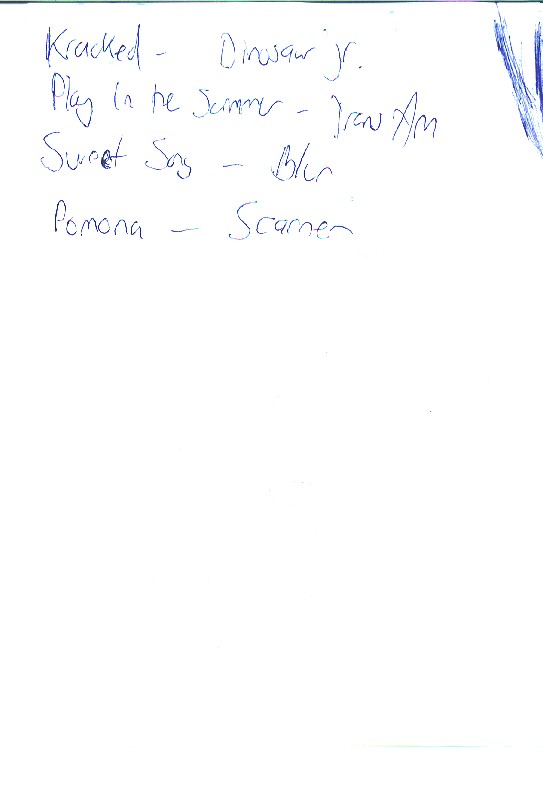 Kracked - Dinosaur jr.
Play in the Summer - Trans Am
Sweet Song - Blur
Pomona - Scanner